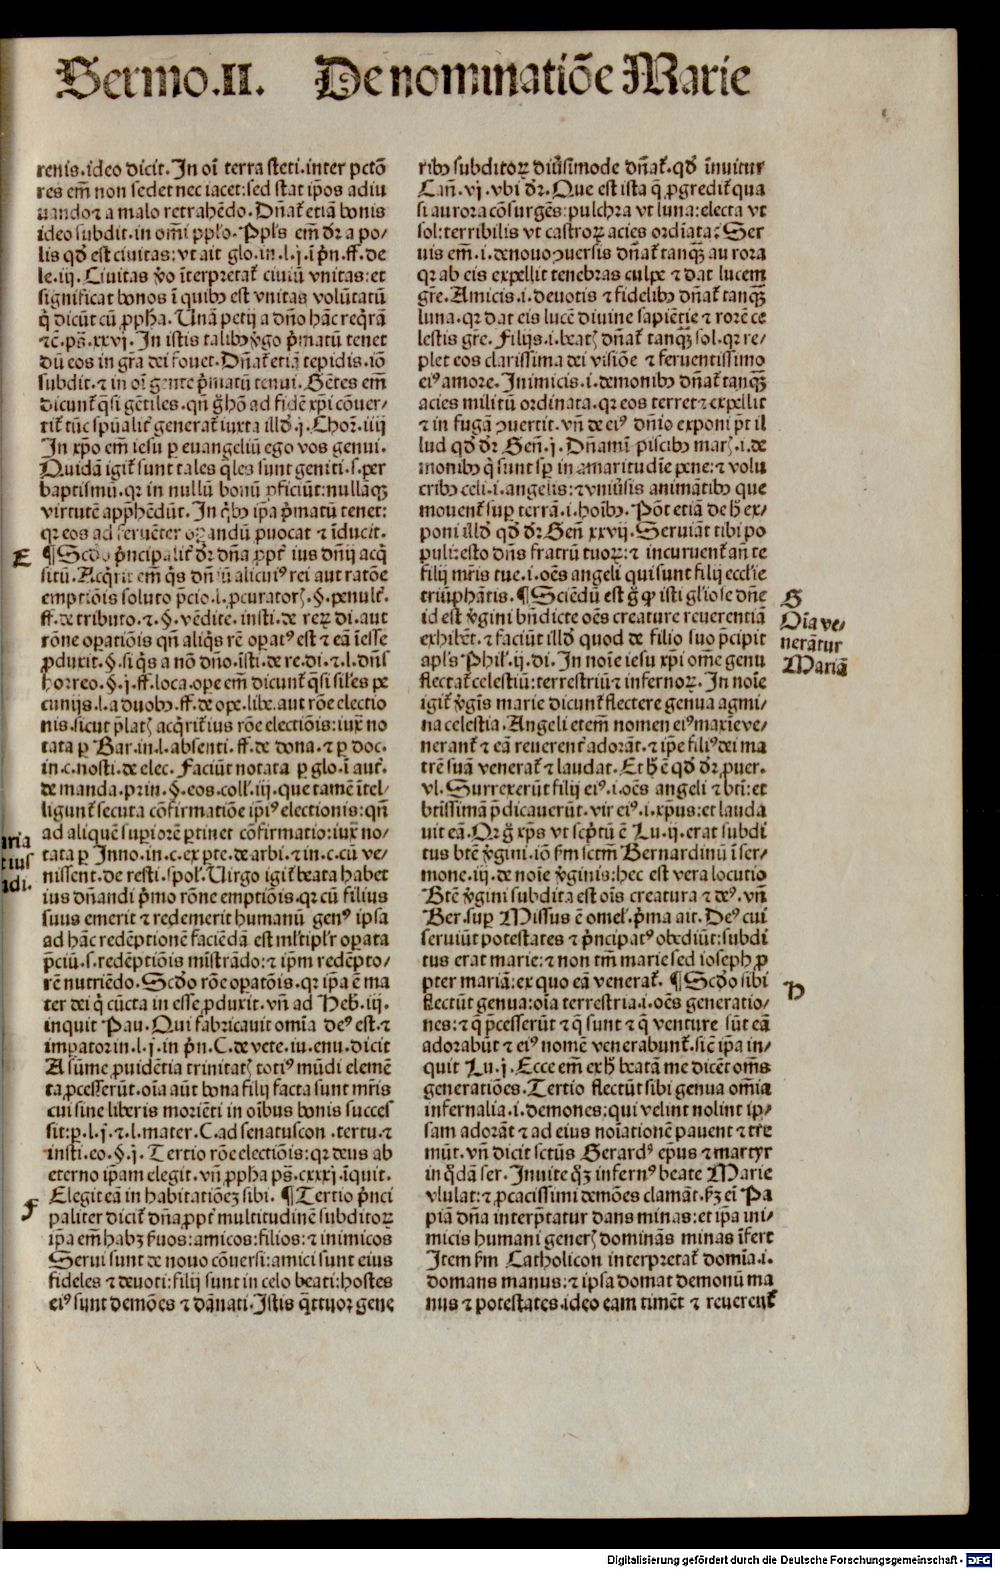 Sermo.II. De nominatiõe Marie
renis.ideo dicit. In oĩ terra steti.inter pctõ
res em̃ non sedet nec iacet:sed stat ip̃os adiu
uando⁊ a malo retrahẽdo. Dñat᷑ etiã bonis
ideo subdit.in om̃i pp̃lo. Pp̃ls em̃ dr̃ a po/
lis qd̓ est ciuitas: vt ait glo.in.l.j.ĩ p̃n.ff.de
le.iij. Ciuitas v̓o ĩterpretat᷑ ciuiũ vnitas:et
significat bonos ĩ quibꝰ est vnitas volũtatũ
q̓ dicũt cũ ꝓph̃a. Unã petij a dño hãc reqr̃ã
⁊c̃ ps̃.xxvj. In istis talibꝰ v̓go p̓matũ tenet
dũ eos in gr̃a dei fouet. Dñat᷑ etiã tepidis.iõ
subdit.⁊ in oĩ gente p̓matũ tenui. Gẽtes em̃
dicunt᷑ q̃si gẽtiles.qñ g̓ hõ ad fidẽ xp̃i cõuer/
tit᷑ tũc sp̃ualit᷑ generat᷑ iuxta illd̓.j. Chor̃.iiij
In xp̃o em̃ iesu ꝑ euangeliũ ego vos genui.
Quidã igit᷑ sunt tales q̃les sunt geniti.s.per
baptismũ.qr in nullũ bonũ ꝓficiũt:nullãqꝫ
virtutẽ app̃hẽdũt. In q̓bꝰ ip̃a p̓matũ tenet:
qr eos ad feruẽter oꝑandũ ꝓuocat ⁊ ĩducit.
E
¶Scd̓o p̓ncipalit᷑ dr̃ dña ꝓpt᷑ ius dñij acq̓
sitũ. Acq̓rit em̃ q̓s dñiũ alicuiꝰ rei aut ratõe
emptiõis soluto p̃cio.l.ꝓcuratorꝭ.§.penult᷑.
ff.de tributo.⁊.§.vẽdite.insti.de reꝝ di.aut
rõne oꝑatiõis qñ aliq̓s rẽ oꝑatꝰ est ⁊ eã ĩ esse
ꝓduxit.§.si q̓s a nõ dño.ĩsti.de re.di.⁊.l.dñs
horreo.§.j.ff.loca.ope em̃ dicunt᷑ q̃si sil̃es pe
cunijs.l.a duobꝰ.ff.de ope.libe.aut rõe electio
nis.sicut p̃latꝭ acq̓rit᷑ ius rõe electiõis: iux̃ no
tata ꝑ Bar.in.l.absenti.ff.de dona.⁊ ꝑ doc.
in.c.nosti.de elec. Faciũt notata ꝑ glo.ĩ aut᷑.
de manda.prin.§.eos.coll᷑.iij.que tamẽ ĩtel/
ligunt᷑ secuta cõfirmatiõe ip̃iꝰ electionis:qñ
ad aliquẽ superiorẽ ꝑtinet cõfirmatio:iux̃ no/
aria
tius
ndi.
tata ꝑ Inno.in.c.ex ꝑte.de arbi.⁊ in.c.cũ ve/
nissent.de resti.spol᷑. Uirgo igit᷑ beata habet
ius dñandi p̓mo rõne emptiõis.qr cũ filius
suus emerit ⁊ redemerit humanũ genꝰ ipsa
ad hãc redẽptionẽ faciẽdã est ml̃tipl̃r oꝑata
p̃ciũ.s.redẽptiõis mĩstrãdo:⁊ ip̃m redẽpto/
rẽ nutriẽdo. Scd̓o rõe oꝑatõis.qr ip̃a ẽ ma
ter dei q̓ cũcta in esse ꝓduxit.vñ ad Heb̃.iij.
inquit Pau. Qui fabricauit om̃ia deꝰ est.⁊
imꝑator in.l.j.in p̓n.C.de vete.iu.enu.dicit
A sũme ꝓuidẽtia trinitatꝭ totiꝰ mũdi elemẽ
ta ꝓcesserũt.oĩa aũt bona filij facta sunt mr̃is
cui sine liberis moriẽti in oĩbus bonis succes
sit:ꝑ.l.j.⁊.l.mater.C.ad senatuscon.tertu.⁊
insti.eo.§.j. Tertio rõe electiõis:qr deus ab
eterno ip̃am elegit.vñ ꝓpha ps̃.cxxxj.ĩquit.
F
Elegit eã in habitatiõeꝫ sibi. ¶Tertio p̓nci
paliter dicit᷑ dña ꝓpt᷑ multitudinẽ subditoꝝ
ip̃a em̃ habꝫ ẜuos:amicos:filios:⁊ inimicos
Serui sunt de nouo cõuersi:amici sunt eius
fideles ⁊ deuoti:filij sunt in celo beati:hostes
eiꝰ sunt demões ⁊ dãnati. Istis q̃ttuor gene
ribꝰ subditoꝝ diũsimode dñat᷑. qd̓ ĩnuitur
Cañ.vj.vbi dr̃. Que est ista q̃ ꝓgredit᷑ qua
si aurora cõsurgẽs:pulchra vt luna:electa vt
sol:terribilis vt castroꝝ acies ordĩata? Ser
uis em̃.i.denouo ꝯuersis dñat᷑ tanqꝫ̃ aurora
qr ab eis expellit tenebras culpe ⁊ dat lucem
gr̃e. Amicis.i.deuotis ⁊ fidelibꝰ dñat᷑ tanqꝫ̃
luna.qr dat eis lucẽ diuine sapiẽtie ⁊ rorẽ ce
lestis gr̃e. Filijs.i.beatꝭ dñat᷑ tanqꝫ̃ sol.qr re/
plet eos clarissima dei visiõe ⁊ feruentissimo
eiꝰ amore. Inimicis.i.demonibꝰ dñat᷑ tanqꝫ̃
acies militũ ordinata.qr eos terret ⁊ expellit
⁊ in fugã ꝯuertit.vñ de eiꝰ dñio exponi p̃t il
lud qd̓ dr̃ Geñ.j. Dñaminĩ piscibꝰ marꝭ.i.de
monibꝰ q̓ sunt sꝑ in amaritudĩe pene:⁊ volu
cribꝰ celi.i.angelis:⁊vniũsis animãtibꝰ que
mouent᷑ suꝑ terrã.i.hoĩbꝰ. Põt etiã de h̓ ex/
poni illd̓ qd̓ dr̃ Geñ xxvij. Seruiãt tibi po
puli:esto dñs fratrũ tuoꝝ:⁊ incuruent᷑ añ te
filij mr̃is tue.i.oẽs angeli qui sunt filij eccl̃ie
G
Oĩa ve/
nerãtur
Mariã
triũphãtis. ¶Sciẽdũ est g̓ ꝙ isti gl̃iose dñe
id est v̓gini bñdicte oẽs creature reuerentiã
exhibẽt.⁊ faciũt illd̓ quod de filio suo p̃cipit
apl̃s Phil᷑.ij.di. In noĩe iesu xp̃i om̃e genu
flectat᷑ celestiũ:terrestriũ⁊ infernoꝝ. In noĩe
igit᷑ v̓gĩs marie dicunt᷑ flectere genua agmi/
na celestia. Angeli etem̃ nomen eiꝰ maxĩe ve/
nerant᷑ ⁊ eã reuerent᷑ adorãt.⁊ ip̃e filiꝰ dei ma
trẽ suã venerat᷑ ⁊ laudat. Et h̓ ẽ qd̓ dr̃ ꝓuer.
vl. Surrexerũt filij eiꝰ.i.oẽs angeli ⁊ bt̃i:et
bt̃issimã p̃dicauerũt.vir eiꝰ.i.xp̃us:et lauda
uit eã. Qr g̓ xp̃s vt scp̃tũ ẽ Lu.ij.erat subdi
tus bt̃e v̓gini.iõ ẜm sctm̃ Bernardinũ ĩ ser/
mone.iij.de noĩe v̓ginis:hec est vera locutio
Bt̃e v̓gini subdita est oĩs creatura ⁊ deꝰ.vñ
Ber.suꝑ Missus ẽ omel᷑.p̓ma ait. Deꝰ cui
seruiũt potestates ⁊ p̓ncipatꝰ obediũt:subdi
tus erat marie:⁊ non tm̃ marie sed ioseph ꝓ
pter mariã:ex quo eã venerat᷑. ¶Scd̓o sibi
H
flectũt genua:oĩa terrestria.i.oẽs generatio/
nes:⁊ q̃ p̃cesserũt ⁊ q̃ sunt ⁊ q̃ venture sũt eã
adorabũt ⁊ eiꝰ nomẽ venerabunt᷑.si᷑c ip̃a in/
quit Lu.j. Ecce em̃ ex h̓ beatã me dicẽt om̃s
generatiões. Tertio flectũt sibi genua om̃ia
infernalia.i.demones:qui velint nolint ip/
sam adorãt ⁊ ad eius noĩationẽ pauent ⁊ tre
mũt.vñ dicit sctũs Gerardꝰ ep̃us ⁊ martyr
in q̃dã ser. Inuite qꝫ̃ infernꝰ beate Marie
vlulat:⁊ ꝓcacissimi demões clamãt.ẜꝫ eĩ Pa
piã dña interp̃tatur dans minas:et ip̃a ini/
micis humani generꝭ dominãs minas ĩfert
Item ẜm Catholicon interpretat᷑ domĩa.i.
domans manus:⁊ ipsa domat demonũ ma
nus ⁊ potestates.ideo eam timẽt ⁊ reuerent᷑
Digitalisierung gefördert durch die Deutsche Forschungsgemeinschaft - DFG